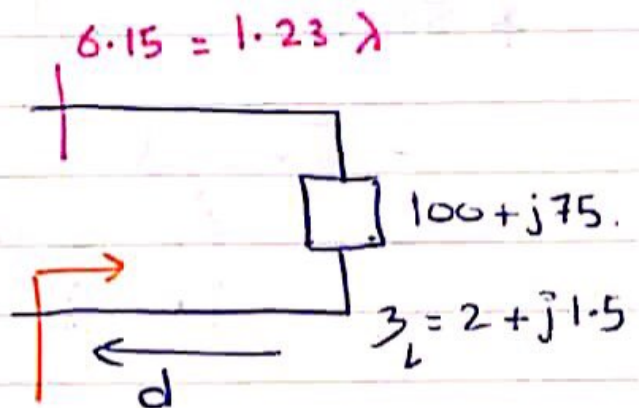 6.15 = 1.23 λ
100 + j 75.
3L = 2 + j 1.5
d